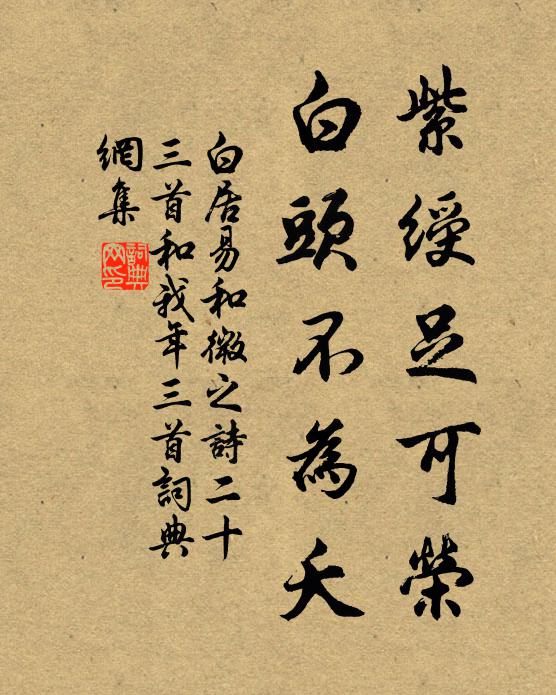 紫綬足可榮
白頭不為夭
白居易和微之詩二十
三首和我年三首詞典
網集
詞典
网印